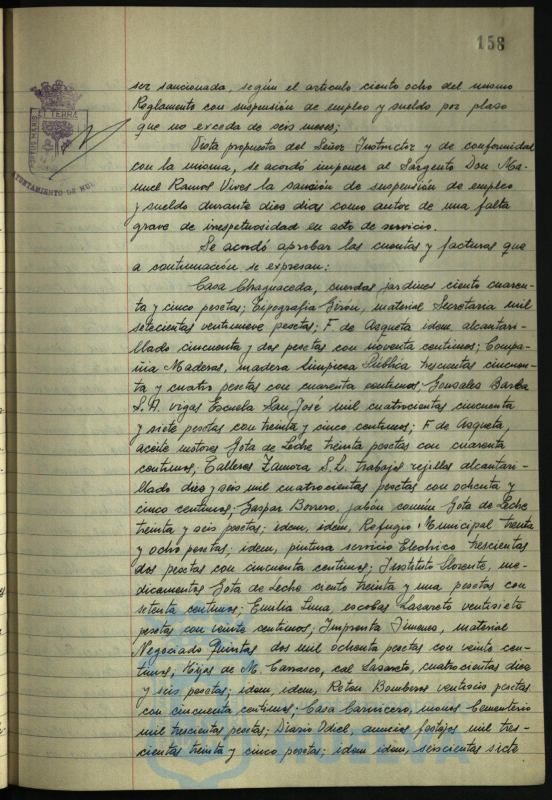 158
ser sancionada, según el articulo ciento ocho del mismo
Reglamento con suspensión de empleo y sueldo por plazo
que no exceda de seis meses;
Vista propuesta del Señor Instructor y de conformidad
con la misma, se acordó imponer al Sargento Don Ma-
nuel Ramos Vives la sanción de suspensión de empleo
y sueldo durante diez dias como autor de una falta
grave de irrespetuosidad en acto de servicio.
Se acordó aprobar las cuentas y facturas que
a continuación se expresan:
Casa cuerdas jardines ciento cuaren-
ta y cinco pesetas; Tipografia Girón, material Secretaria mil
setecientas ventinueve pesetas; F. de Azqueta idem alcantari-
llado cincuenta y dos pesetas con noventa centimos; Compa-
ñia Maderas, madera Limpieza Pública trescientas cincuen-
ta y cuatro pesetas con cuarenta centimos Gonzalez Barba
S.A. vigas Escuela San José mil cuatrocientas cincuenta
y siete pesetas con treinta y cinco centimos; F de Azqueta,
aceite motores Gota de Leche treinta pesetas con cuarenta
centimos; Talleres Zamora S.L. trabajos rejillas alcantari-
llado diez y seis mil cuatrocientas pesetas con ochenta y
cinco centimos; Gaspar Borrero, jabón común Gota de Leche
treinta y seis pesetas; idem, idem, Refugio Municipal treinta
y ocho pesetas; idem, pintura servicio Electrico trescientas
dos pesetas con cincuenta centimos; Instituto Llorente, me-
dicamentos Gota de Leche ciento treinta y una pesetas con
setenta centimos; Emilia Luna, escobas Lazareto ventisiete
pesetas con veinte centimos; Imprenta Jimenez, material
Negociado Quintas dos mil ochenta pesetas con veinte cen-
timos; Hijas de M. Carrasco, cal Lazareto, cuatrocientas diez
y seis pesetas; idem, idem, Reten Bomberos pesetas
con cincuenta centimos; Casa Carnicero, Cementerio
mil trescientas pesetas; Diario Odiel, anuncios festejos mil tres-
cientas treinta y cinco pesetas; idem idem, seiscientas siete